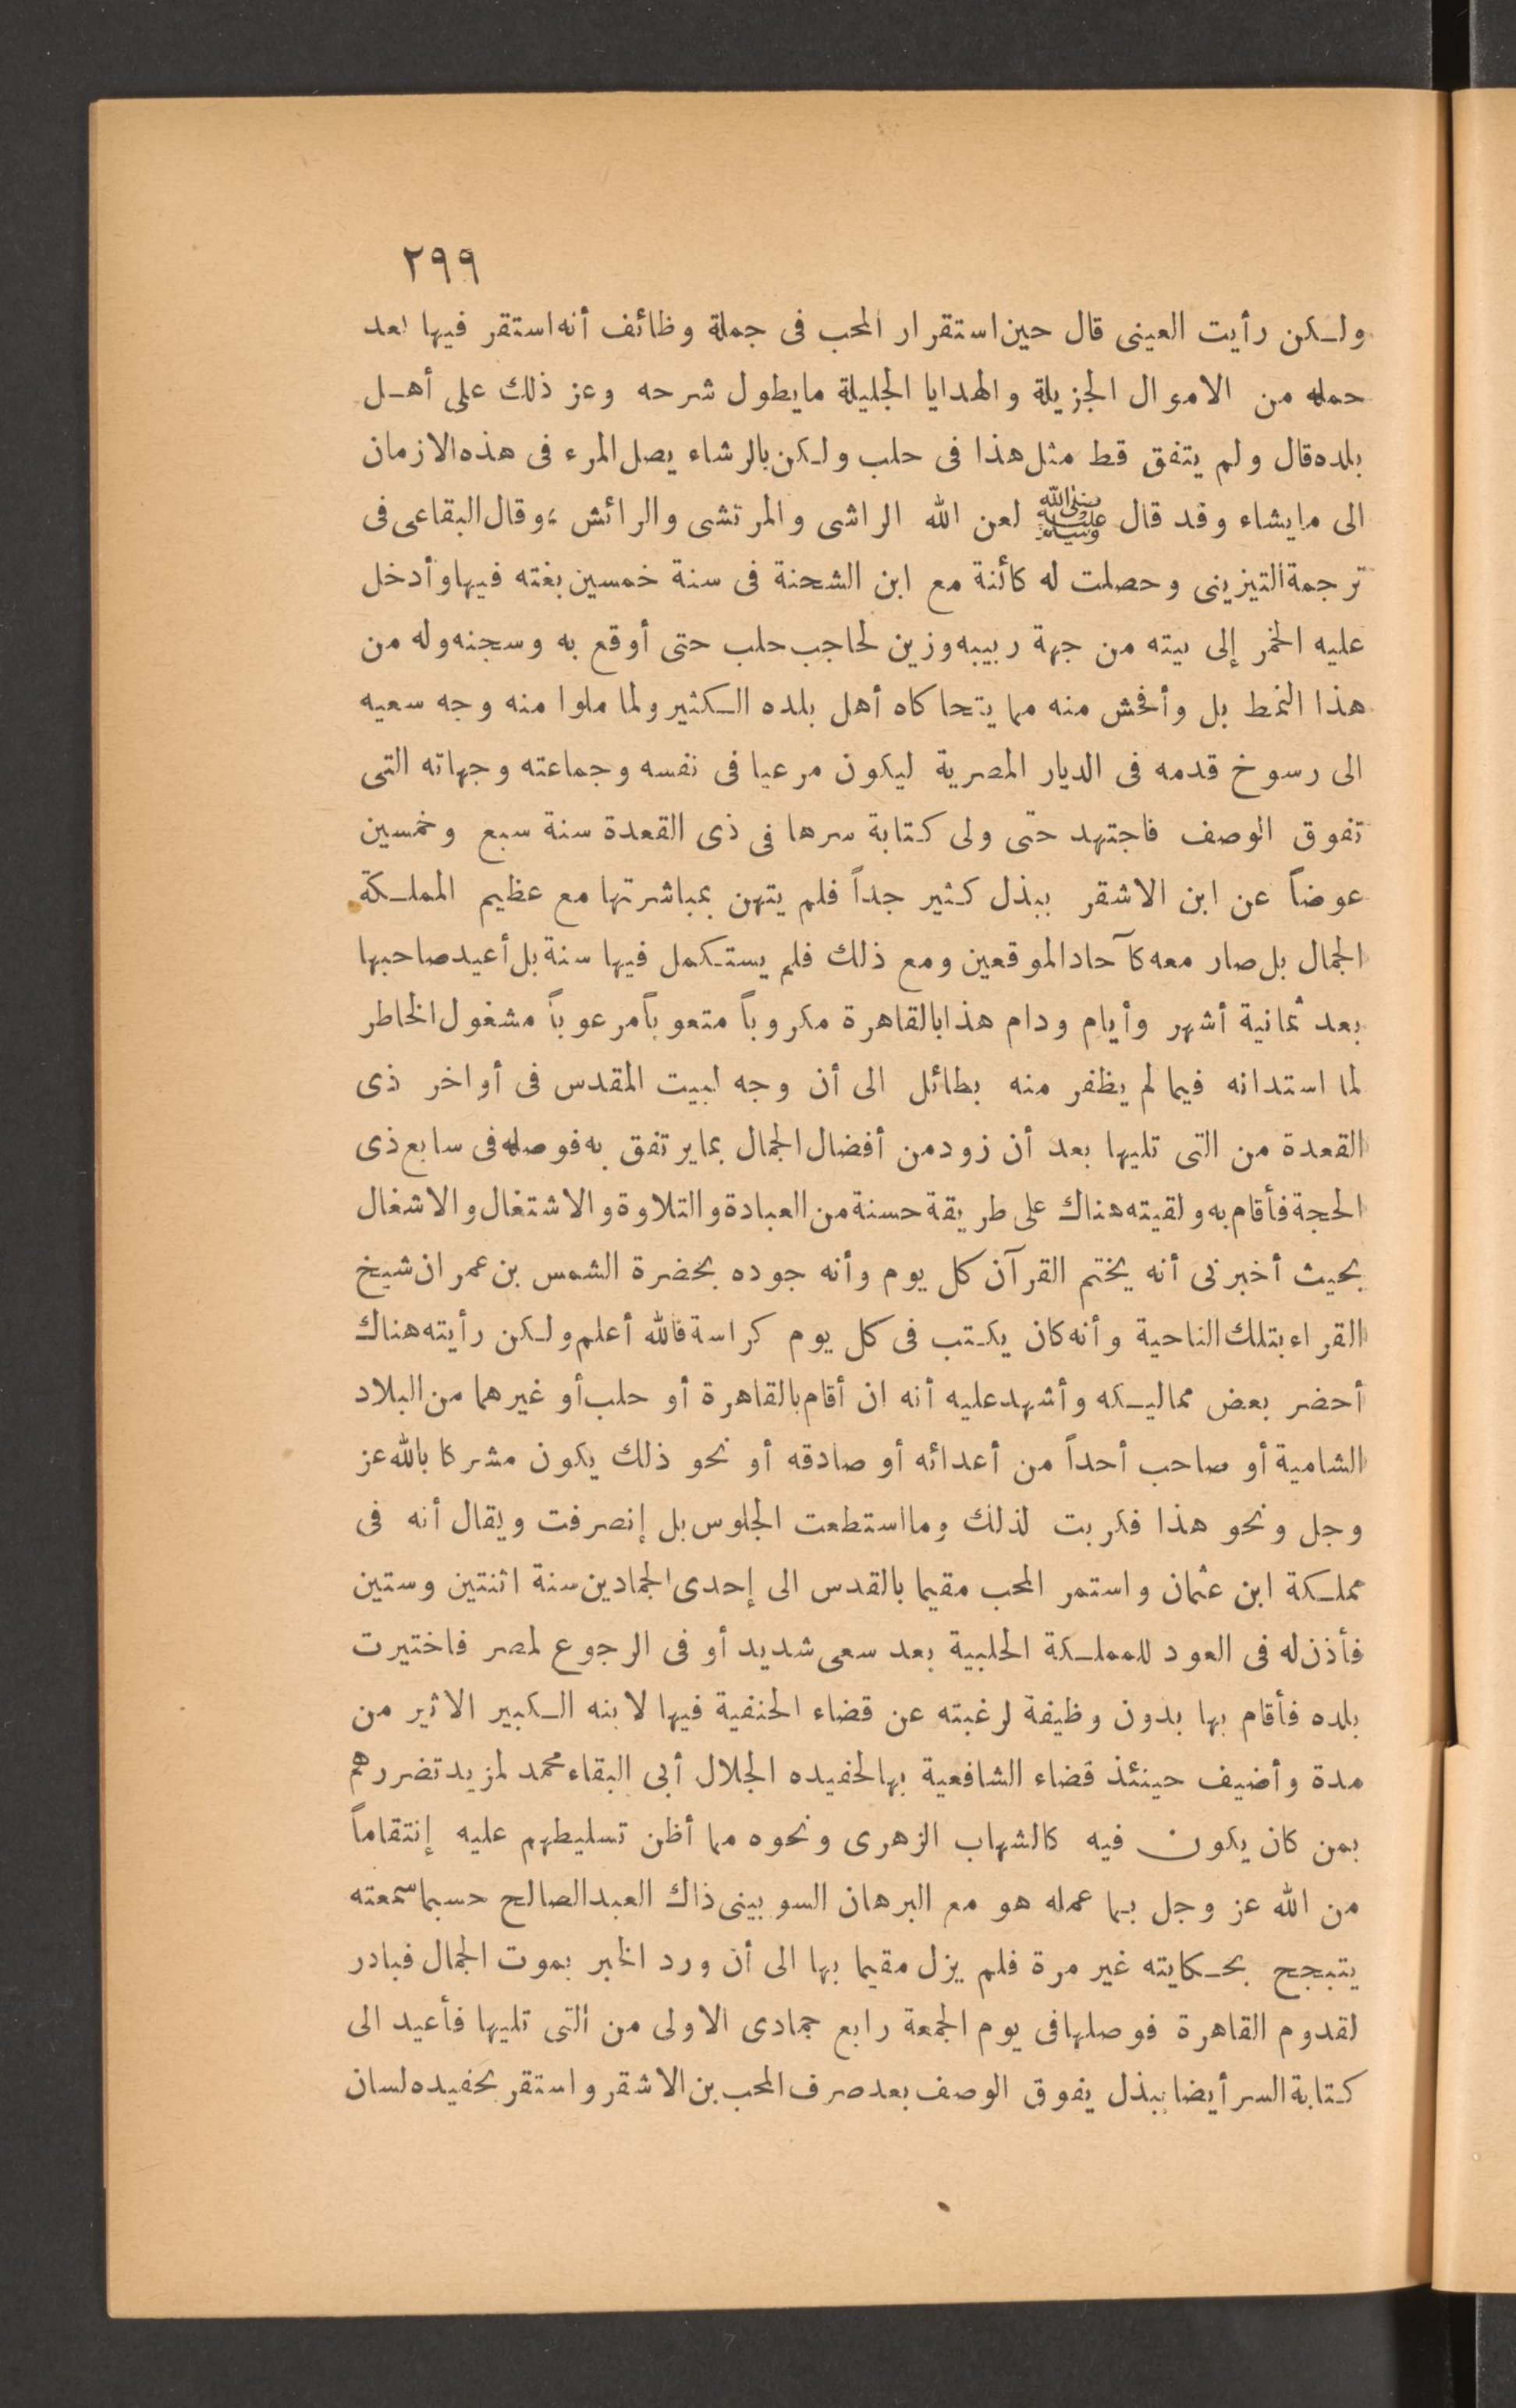 ٢٩٩
ولكن رأيت العينى قال حين استقرار المحب فى جملة وظائف أنه استقر فيها بعد
حمله من الاموال الجزيلة والهدايا الجليلة مايطول شرحه وعز ذلك على أهل
بلده قال ولم يتفق قط مثل هذا فى حلب ولكن بالرشاء يصل المرء فى هذه الازمان
الى مايشاء وقد قال ﷺ لعن الله الراشى والمرتشى والرائش ، وقال البقاعى فى
ترجمة التيزينى وحصلت له كائنة مع ابن الشحنة فى سنة خمسين بغته فيها وأدخل
عليه الخمر إلى بيته من جهة ربيبه وزين لحاجب حلب حتى أوقع به وسجنه وله من
هذا النمط بل وأفحش منه مما يتحاكاه أهل بلده الكثير ولما ملوا منه وجه سعيه
الى رسوخ قدمه فى الديار المصرية ليكون مرعيا فى نفسه وجماعته وجهاته التى
تفوق الوصف فاجتهد حتى ولى كتابة سرها فى ذى القعدة سنة سبع وخمسين
عوضاً عن ابن الاشقر ببذل كثير جداً فلم يتهن بمباشرتها مع عظيم المملكة
الجمال بل صار معه كآحاد الموقعين ومع ذلك فلم يستكمل فيها سنة بل أعيد صاحبها
بعد ثمانية أشهر وأيام ودام هذا بالقاهرة مكروباً متعوباً مرعوباً مشغول الخاطر
لما استدانه فيما لم يظفر منه بطائل الى أن وجه لبيت المقدس فى أواخر ذى
القعدة من التى تليها بعد أن زود من أفضال الجمال بما يرتفق به فوصله فى سابع ذى
الحجة فأقام به ولقيته هناك على طريقة حسنة من العبادة والتلاوة والاشتغال والاشغال
بحيث أخبرنى أنه يختم القرآن كل يوم وأنه جوده بحضرة الشمس بن عمران شيخ
القراء بتلك الناحية وأنه كان يكتب فى كل يوم كراسة فالله أعلم ولكن رأيته هناك
أحضر بعض مماليكه وأشهد عليه أنه ان أقام بالقاهرة أو حلب أو غيرهما من البلاد
الشامية أو صاحب أحداً من أعدائه أو صادقه أو نحو ذلك يكون مشركا بالله عز
وجل ونحو هذا فكربت لذلك وما استطعت الجلوس بل إنصرفت ويقال أنه فى
مملكة ابن عثمان واستمر المحب مقيما بالقدس الى إحدى الجمادين سنة اثنتين وستين
فأذن له فى العود للمملكة الحلبية بعد سعى شديد أو فى الرجوع لمصر فاختيرت
بلده فأقام بها بدون وظيفة لرغبته عن قضاء الحنفية فيها لابنه الكبير الاثير من
مدة وأضيف حينئذ قضاء الشافعية بها لحفيده الجلال أبى البقاء محمد لمزيد تضررهم
بمن كان يكون فيه كالشهاب الزهرى ونحوه مما أظن تسليطهم عليه إنتقاماً
من الله عز وجل بما عمله هو مع البرهان السوبينى ذاك العبد الصالح حسبما سمعته
يتبجح بحكايته غير مرة فلم يزل مقيما بها الى أن ورد الخبر بموت الجمال فبادر
لقدوم القاهرة فوصلها فى يوم الجمعة رابع جمادى الاولى من التى تليها فأعيد الى
كتابة السر أيضا ببذل يفوق الوصف بعد صرف المحب بن الاشقر واستقر بحفيده لسان